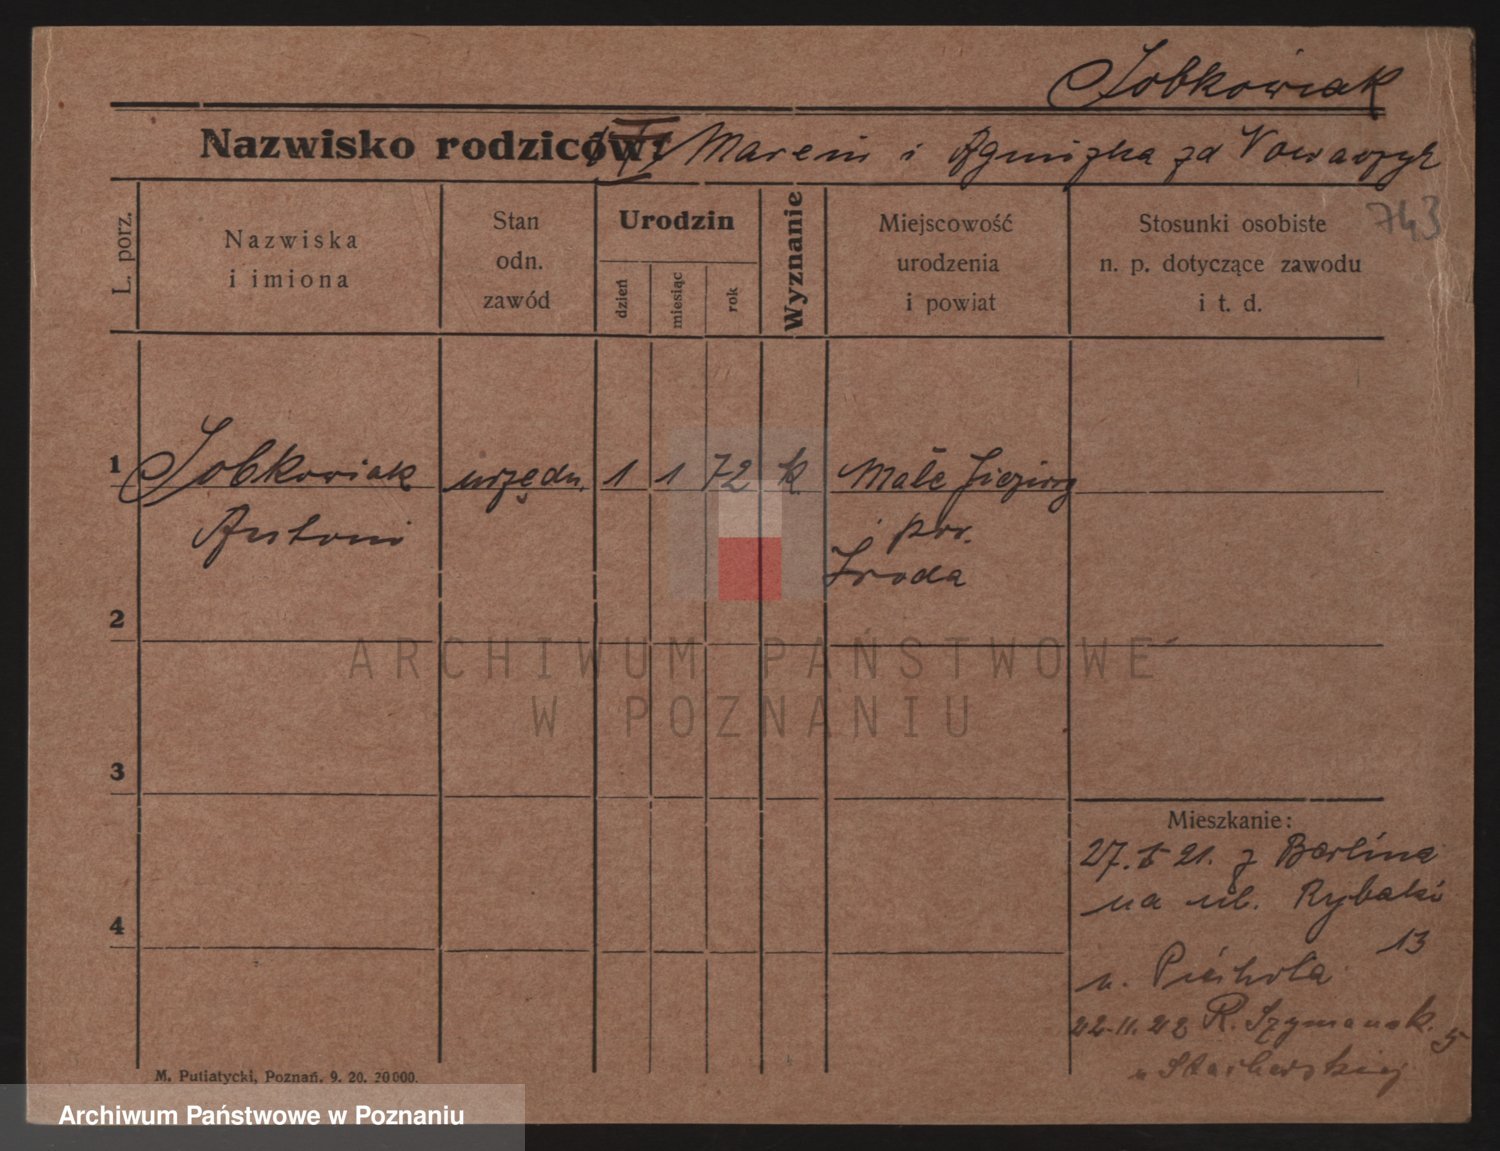 Sobkowiak
Nazwisko rodziców: Marcin i Agnieszka zd Nowaczyk
743
L. porz.
Nazwiska
i imiona
Stan
odn.
zawód
Urodzin
dzień
miesiąc
rok
Wyznanie
Miejscowość
urodzenia
i powiat
Stosunki osobiste
n. p. dotyczące zawodu
i t. d.
1 Sobkowiak urzędn. 1 1 72 k. Małe Jeziory
Antoni pow.
Środa
2
3
4
ARCHIWUM PAŃSTWOWE
W POZNANIU
Mieszkanie:
27. 5 21. z Berlina
na ul. Rybaki
13
u.
22.11.22 R. Szymańsk. 5
u
M. Putiatycki, Poznań. 9. 20. 20000.
Archiwum Państwowe w Poznaniu